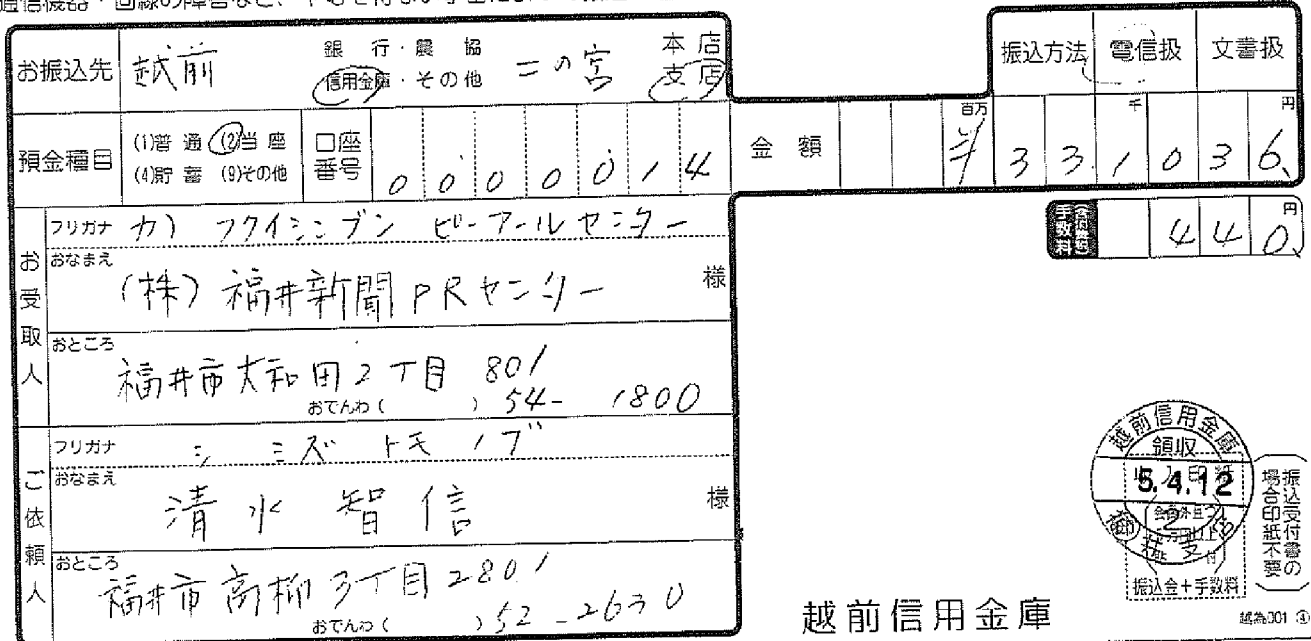 お振込先 越前 銀行・農協 信用金庫・その他 二の宮 本店 支店 振込方法 電信扱 文書扱
預金種目 (1)普通 (2)当座 (4)貯蓄 (9)その他 口座番号 0000014 金額 百万 千 円 ¥331036
手数料 円 440
お受取人
フリガナ カ) フクイシンブン ピーアールセンター
おなまえ (株)福井新聞PRセンター 様
おところ 福井市大和田2丁目801
おでんわ( ) 54-1800
ご依頼人
フリガナ シミズ トモノブ
おなまえ 清水智信 様
おところ 福井市高柳3丁目2801
おでんわ( ) 52-2630
越前信用金庫
領収
5.4.12
振込金+手数料
振込受付書の場合印紙不要
越前信用金庫
越為001 ③